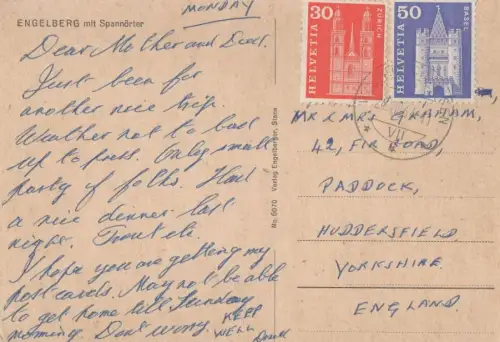 MONDAY
ENGELBERG mit Spannörter
Dear Mother and Dad.
Just been for
another nice trip.
Weather not to bad
up to press. Only small
party of folks. Had
a nice dinner last
night. Trout etc.
I hope you are getting my
postcards. May not be able
to get home till Sunday
morning. Dont worry. KEEP
WELL
No. 6070 Verlag Engelberger, Stans
30
HELVETIA
ZÜRICH
50
HELVETIA
BASEL
VII
MR & MRS GRAHAM,
42, FIR ROAD,
PADDOCK,
HUDDERSFIELD,
YORKSHIRE.
ENGLAND.